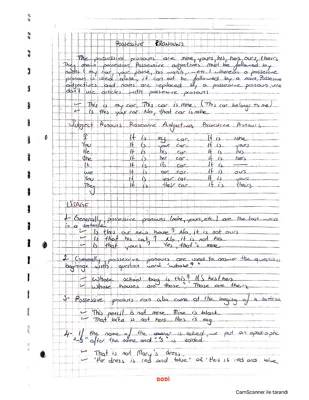 POSSESSIVE PRONOUNS
The possessive pronouns are mine, yours, his, hers, ours, theirs.
They possessive. Possessive adjectives must be followed by
(my car, your phone, his watch, ...etc.) whereas a possessive
pronoun is used alone, it can not be followed by a noun. Possessive
adjectives and nouns are replaced by a possessive pronoun. We
don't use articles with possessive pronouns.
- This is my car. This car is mine. (This car belongs to me)
- Is this your car. No, that car is
Subject Pronouns Possessive Adjectives Possessive Pronouns
I It is my car. It is mine
You It is your car. It is yours
He It is his car It is his
She It is her car It is hers
It It is its car
We It is our car It is ours
You It is your car It is yours
They It is their car It is theirs
USAGE
1- Generally, possessive pronouns (mine, yours, etc.) are the last word
is a sentence
- Is this our new house? No, it is not ours
- Is that his cat? No, it is not his.
- Is that yours? Yes, that's mine.
2- Generally, possessive pronouns are used to answer the question
beginning with question word "whose?"
- Whose school bag is this? It's
- Whose houses are those? Those are
3- Possessive pronouns can also come at the of a sentence
- This pencil is not mine. Mine is black.
- That is not hers. Hers is
4- If the name of the is asked, we put an apostrophe
"s" after the name and "s" is added.
- That is not Mary's dress.
- dress is red and blue" or "His is red and blue
CamScanner ile tarandı